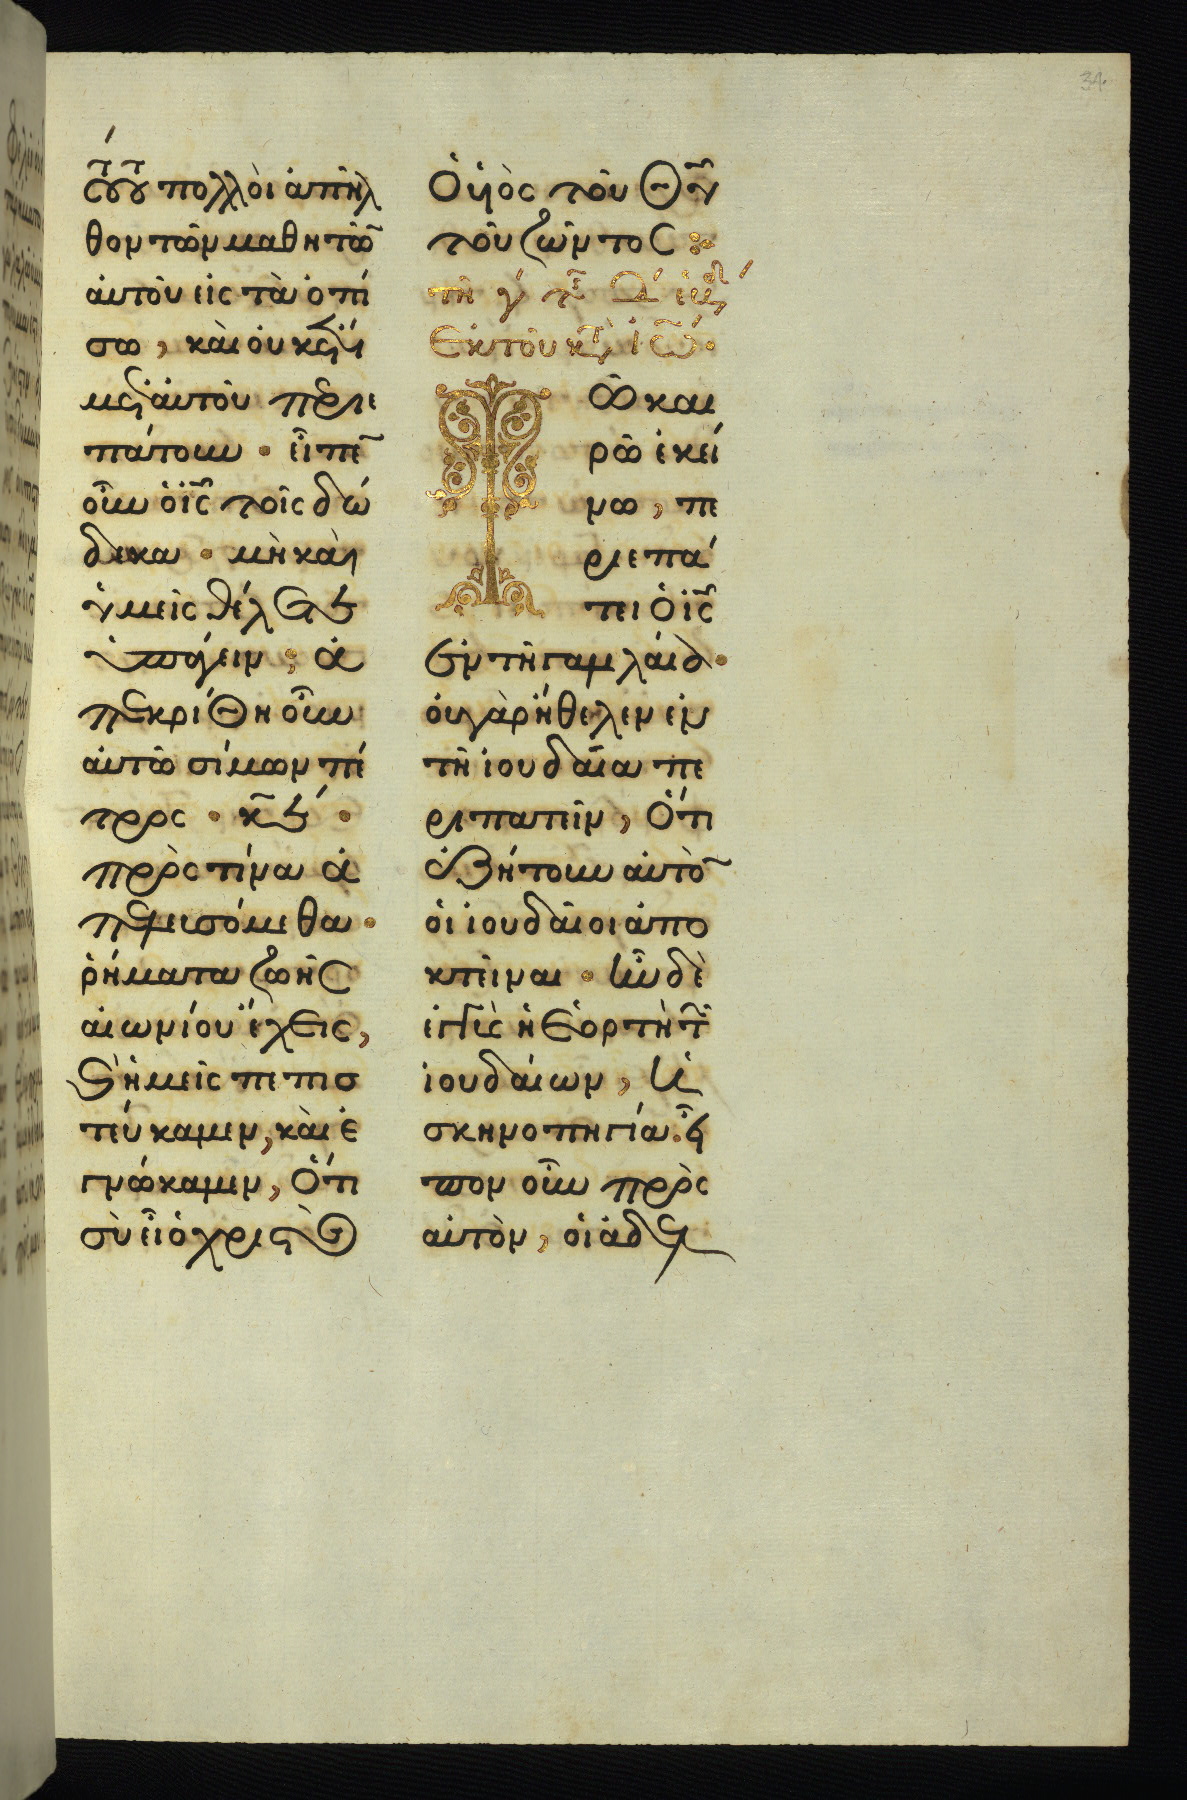 34.
τούτου πολλοὶ ἀπῆλ
θον τῶν μαθητῶ̅
ἀυτοῦ εἰς τὰ ὀπί
σω, καὶ ὀυκέτι
μετἀυτοῦ περιε
πάτουν · εἶπε̅
οὖν ὁ ἰς̅ τοῖς δώ
δεκα · μὴ καὶ
ὑμεῖς θέλετε
ὑπάγειν ; ἀ
πεκρίθη οὖν
ἀυτῶ σίμων πέ
τρος · κ̅ε̅ ·
πρὸς τίνα ἀ
πελευσόμεθα ·
ῥήματα ζωῆς
αἰωνίου ἔχεις,
καὶ ἡμεῖς πεπισ
τεύκαμεν, καὶ ἐ
γνώκαμεν, ὅτι
σὺ εἶ ὁ χριστὸς
Ὁ υἱὸς τοῦ Θ̅υ̅
τοῦ ζῶντος :
τῆ γ́ τῆς Δ́ ἑβδ
Ἐκ τοῦ κατὰ ἰω̅
Τῶ και
ρῶ ἐκεί
νω, πε
ριεπά
τει ὁ ἰς̅
ἐν τῆ γαλιλαία ·
ὀυ γὰρ ἤθελεν ἐν
τῆ ἰουδαία πε
ριπατεῖν, Ὅτι
ἐζήτουν ἀυτὸ̅
ὁι ἰουδαῖοι ἀπο
κτεῖναι · ἦν δὲ
ἐγγὺς ἡ ἑορτὴ τῶν
ἰουδαίων, ἡ
σκηνοπηγία. εἶ
πον οὖν πρὸς
ἀυτὸν, ὁι ἀδελ